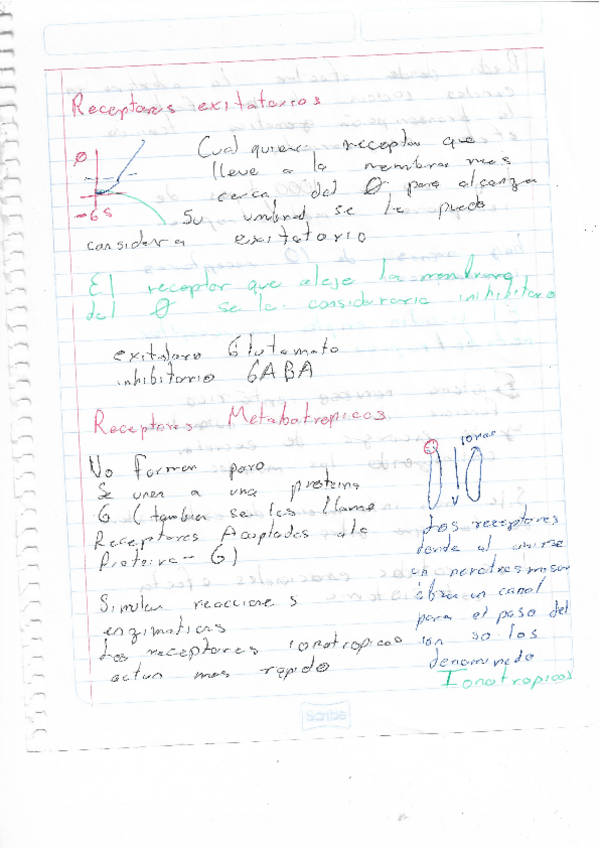 Receptores exitatorios
0
-65
Cualquier receptor que
lleve a la membrana mas
cerca del 0 para alcanza
su umbral se le puede
considera exitatorio
El receptor que aleje la membrana
del 0 se le consideraria inhibitorio
exitatorio Glutamato
inhibitorio GABA
Receptores Metabotropicos
No forman poro
Se unen a una proteina
G (tambien se les llama
Receptores Acoplados ale
Proteina-G)
Simulan reacciones
enzimaticas
Los receptores ionotropicos
actuan mas rapido
ionas
Los receptores
donde al unirse
un neurotransmisor
abra un canal
para el paso del
ion so los
denominado
Ionotropicos
Scribe